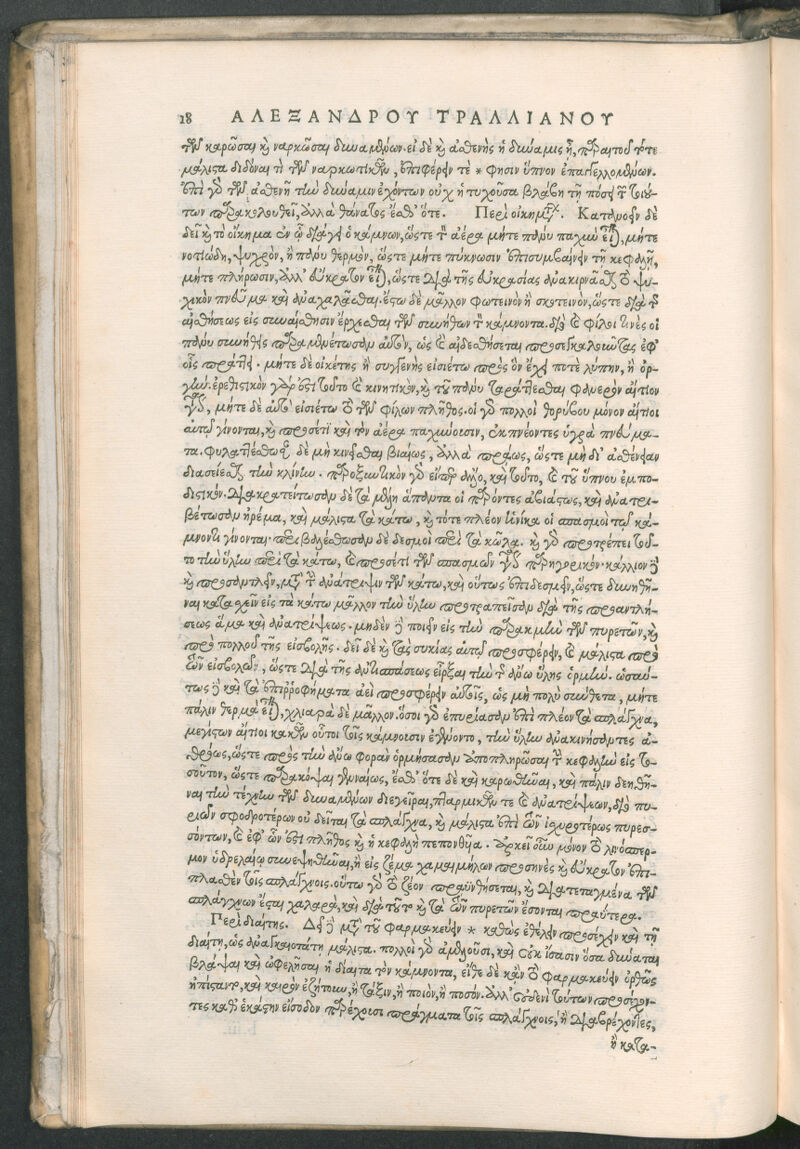 18 ΑΛΕΞΑΝΔΡΟΥ ΤΡΑΛΛΙΑΝΟΥ
τῶν καρῶσαι καὶ ναρκῶσαι δυναμένων. εἰ δὲ καὶ ἀσθενὴς ἡ δύναμις ᾖ, παραιτοῦ τότε
μάλιστα διδόναι τὶ τῶν ναρκωτικῶν, ἐπιφέρειν τὲ * φησιν ὕπνον ἐπαγγελλομένων.
ἐπὶ γὰρ τῶν ἀσθενῆ τὴν δύναμιν ἐχόντων οὐχ ἡ τυχοῦσα βλάβη τῇ πόσει τῶν τοιού-
των παρακολουθεῖ, ἀλλὰ θάνατος ἔσθ' ὅτε. Περὶ οἰκήματος. Κατὰ
δεῖ καὶ τὸ οἴκημα ἐν ᾧ διάγει ὁ κάμνων, ὥστε τὸν ἀέρα μήτε πάνυ παχὺν εἶναι, μήτε
νοτιώδη, ψυχρὸν, ἢ πάνυ θερμὸν, ὥστε μήτε πύκνωσιν ἐπισυμβαίνειν τῇ κεφαλῇ,
μήτε πλήρωσιν, ἀλλ' εὔκρατον εἶναι, ὥστε διὰ τῆς εὐκρασίας ἀνακιρνᾶσθαι τὸ ψυ-
χικὸν πνεῦμα καὶ ἀναχαλᾶσθαι. ἔστω δὲ μᾶλλον φωτεινὸν ἢ σκοτεινὸν, ὥστε διὰ τῆς
αἰσθήσεως εἰς συναίσθησιν ἔρχεσθαι τῶν συνήθων τὸν κάμνοντα. διὸ καὶ φίλοι τινὲς οἱ
πάνυ συνήθεις παραμενέτωσαν αὐτῷ, ὡς καὶ αἰδεσθήσεται προσεγκαλοῦντας ἐφ'
οἷς πράττει. μήτε δὲ οἰκέτης ἢ συγγενὴς εἰσίτω πρὸς ὃν ἔχει ποτὲ λύπην, ἢ ὀρ-
γήν. ἐρεθιστικὸν γάρ ἐστι τοῦτο καὶ κινητικὸν, καὶ τοῦ πάνυ ταράττεσθαι φανερὸν αἴτιον
μήτε δὲ αὖθις εἰσιέτω τὸ τῶν φίλων πλῆθος. οἱ γὰρ πολλοὶ θορύβου μόνον αἴτιοι
αὐτῷ γίνονται, καὶ προσέτι καὶ τὸν ἀέρα παχύνουσιν, ἐκπνέοντες ὑγρὰ πνεύμα-
τα. φυλαττέσθω δὲ μὴ κινεῖσθαι βιαίως, ἀλλὰ πράως, ὥστε μὴ δι' ἀσθένειαν
διασείεσθαι τὴν κλίνην. παροξυντικὸν γὰρ εἴπερ ἄλλο, καὶ τοῦτο, καὶ τοῦ ὕπνου ἐμπο-
διστικόν. διακρατείτωσαν δὲ τὰ μέλη ἅπαντα οἱ παρόντες ἀβιάστως, καὶ ἀνατρι-
βέτωσαν ἠρέμα, καὶ μάλιστα τὰ κάτω, καὶ τότε πλέον ἡνίκα οἱ σπασμοὶ τῷ κά-
μνοντι γίνονται. περιβαλέσθωσαν δὲ δεσμοὶ περὶ τὰ κῶλα. καὶ γὰρ προτρέπει τοῦ-
το τὴν ὕλην περὶ τὰ κάτω, καὶ προσέτι τῶν σπασμῶν παρηγορικόν. κάλλιον δὲ
καὶ προσαντλεῖν, μετὰ τὸ ἀνατρίψιν τῶν κάτω, καὶ οὕτως ἐπιδεσμεῖν, ὥστε δυνηθῆ-
ναι κατασχεῖν εἰς τὰ κάτω μᾶλλον τὴν ὕλην προτραπεῖσαν διὰ τῆς προαντλή-
σεως ἅμα καὶ ἀνατρίψεως. μηδὲν δὲ ποιεῖν εἰς τὴν παρακμὴν τῶν πυρετῶν, καὶ
πρὸ πολλοῦ τῆς εἰσβολῆς. δεῖ δὲ καὶ τὰς συκίας αὐτῷ προσφέρειν, καὶ μάλιστα πρὸ
τῶν εἰσβολῶν, ὥστε διὰ τῆς ἀντισπάσεως εἶρξαι τὴν τῆς ἄνω ὕλης ὁρμήν. ὡσαύ-
τως δὲ καὶ τὰ ἐπιῤῥοφήματα ἀεὶ προσφέρειν αὐτοῖς, ὡς μὴ πολὺ σύνθετα, μήτε
πάλιν θερμὰ εἶναι, χλιαρὰ δὲ μᾶλλον. ὅσοι γὰρ ἐπυρίασαν ἐπὶ πλέον τὰ σπλάγχνα,
μεγίστων αἴτιοι κακῶν οὗτοι τοῖς κάμνουσιν ἐγένοντο, τὴν ὕλην ἀνακινήσαντες ἀ-
θρόως, ὥστε πρὸς τὴν ἄνω φορὰν ὁρμήσασαν ἀποπληρῶσαι τὴν κεφαλὴν εἰς το-
σοῦτον, ὥστε παρακόψαι γενναίως, ἔσθ' ὅτε δὲ καὶ καρωθῆναι, καὶ πάλιν δεηθῆ-
ναι τὴν τέχνην τῶν δυναμένων διεγεῖραι, πταρμικῶν τε καὶ ἀνατρίψεων, διὸ πυ-
ριῶν σφοδροτέρων οὐ δεῖται τὰ σπλάγχνα, καὶ μάλιστα ἐπὶ τῶν ἰσχυροτέρως πυρεσ-
σόντων, καὶ ἐφ' ὧν ἐστι πλῆθος καὶ ἡ κεφαλὴ πεπονθυῖα. ἀρκεῖ οὖν μόνον τὸ λινόσπερ-
μον ὑδρελαίῳ συνεψηθῆναι, ἢ εἰς ζέμα χαμαιμήλων προσηνὲς καὶ εὔκρατον ἐπι-
πλασθὲν τοῖς σπλάγχνοις. οὕτω γὰρ τὸ ζέον πραϋνθήσεται, καὶ διατεταγμένα τῶν
σπλάγχνων ἔσται χαλαρὰ, καὶ διὰ τοῦτο καὶ τὰ τῶν πυρετῶν ἔσονται πραΰτερα.
Περὶ διαίτης. Δεῖ δὲ μετὰ τοῦ φαρμακεύειν * καθὼς ἐθέλειν προσέχειν καὶ τῇ
διαίτῃ, ὡς ἀναγκαιοτάτῃ μάλιστα. πολλοὶ γὰρ ἀμελοῦσι, καὶ οὐκ ἴσασιν ὅσα δύναται
βλάψαι καὶ ὠφελῆσαι ἡ δίαιτα τὸν κάμνοντα, εἴθε δὲ κἂν τὸ φαρμακεύειν ὀρθῶς
ἠπίσταντο, καὶ καιρὸν ἐζήτουν, ἢ τάξιν, ἢ ποιὸν, ἢ ποσόν. ἀλλ' οὐδενὶ τούτων προσέχον-
τες καθ' ἑκάστην εἴσοδον παρέχουσι πράγματα τοῖς σπλάγχνοις, ἢ διαβρέχοντες,
ἢ κατα-